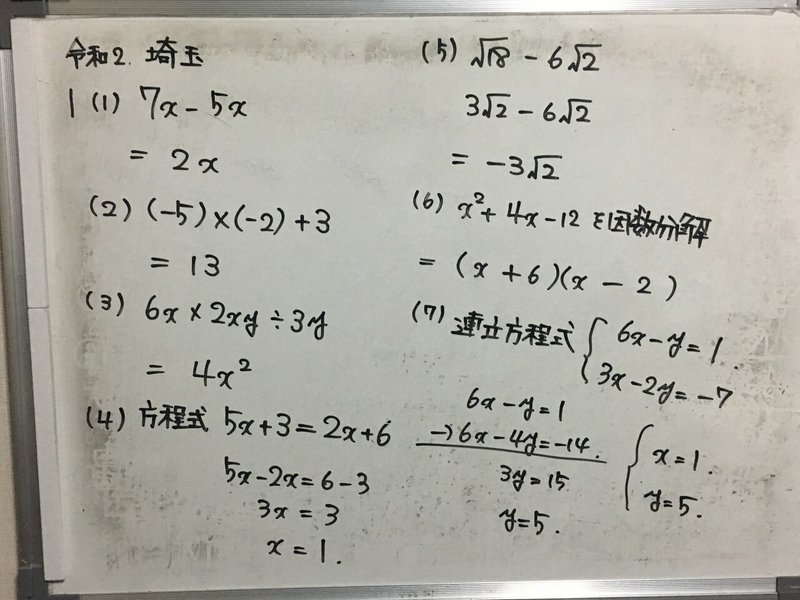 令和2. 埼玉
1 (1) 7x - 5x
= 2x
(2) (-5)×(-2)+3
= 13
(3) 6x × 2xy ÷ 3y
= 4x²
(4) 方程式 5x+3=2x+6
5x-2x=6-3
3x = 3
x = 1.
(5) √18 - 6√2
3√2 - 6√2
= -3√2
(6) x²+4x-12 を因数分解
= (x+6)(x-2)
(7) 連立方程式 { 6x-y=1.
3x-2y=-7
6x-y=1
-) 6x-4y=-14.
3y=15
y=5.
{ x=1.
y=5.